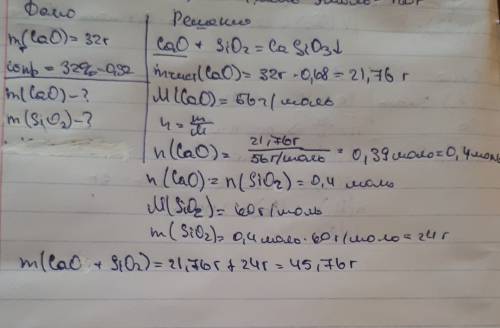 Дано
m(CaO)=32г
m(CaO)-?
m(SiO₂)-?
Решение
CaO + SiO₂ = CaSiO₃↓
(CaO)= 32г · 0,68 = 21,76 г
M(CaO)= 56г/моль
n = m/M
n(CaO)= 21,76г / 56г/моль = 0,39 моль=0,4моль
n(CaO)= n(SiO₂)= 0,4 моль
M(SiO₂)= 60г/моль
m(SiO₂)= 0,4 моль · 60г/моль = 24г
m(CaO + SiO₂)= 21,76г + 24г = 45,76г